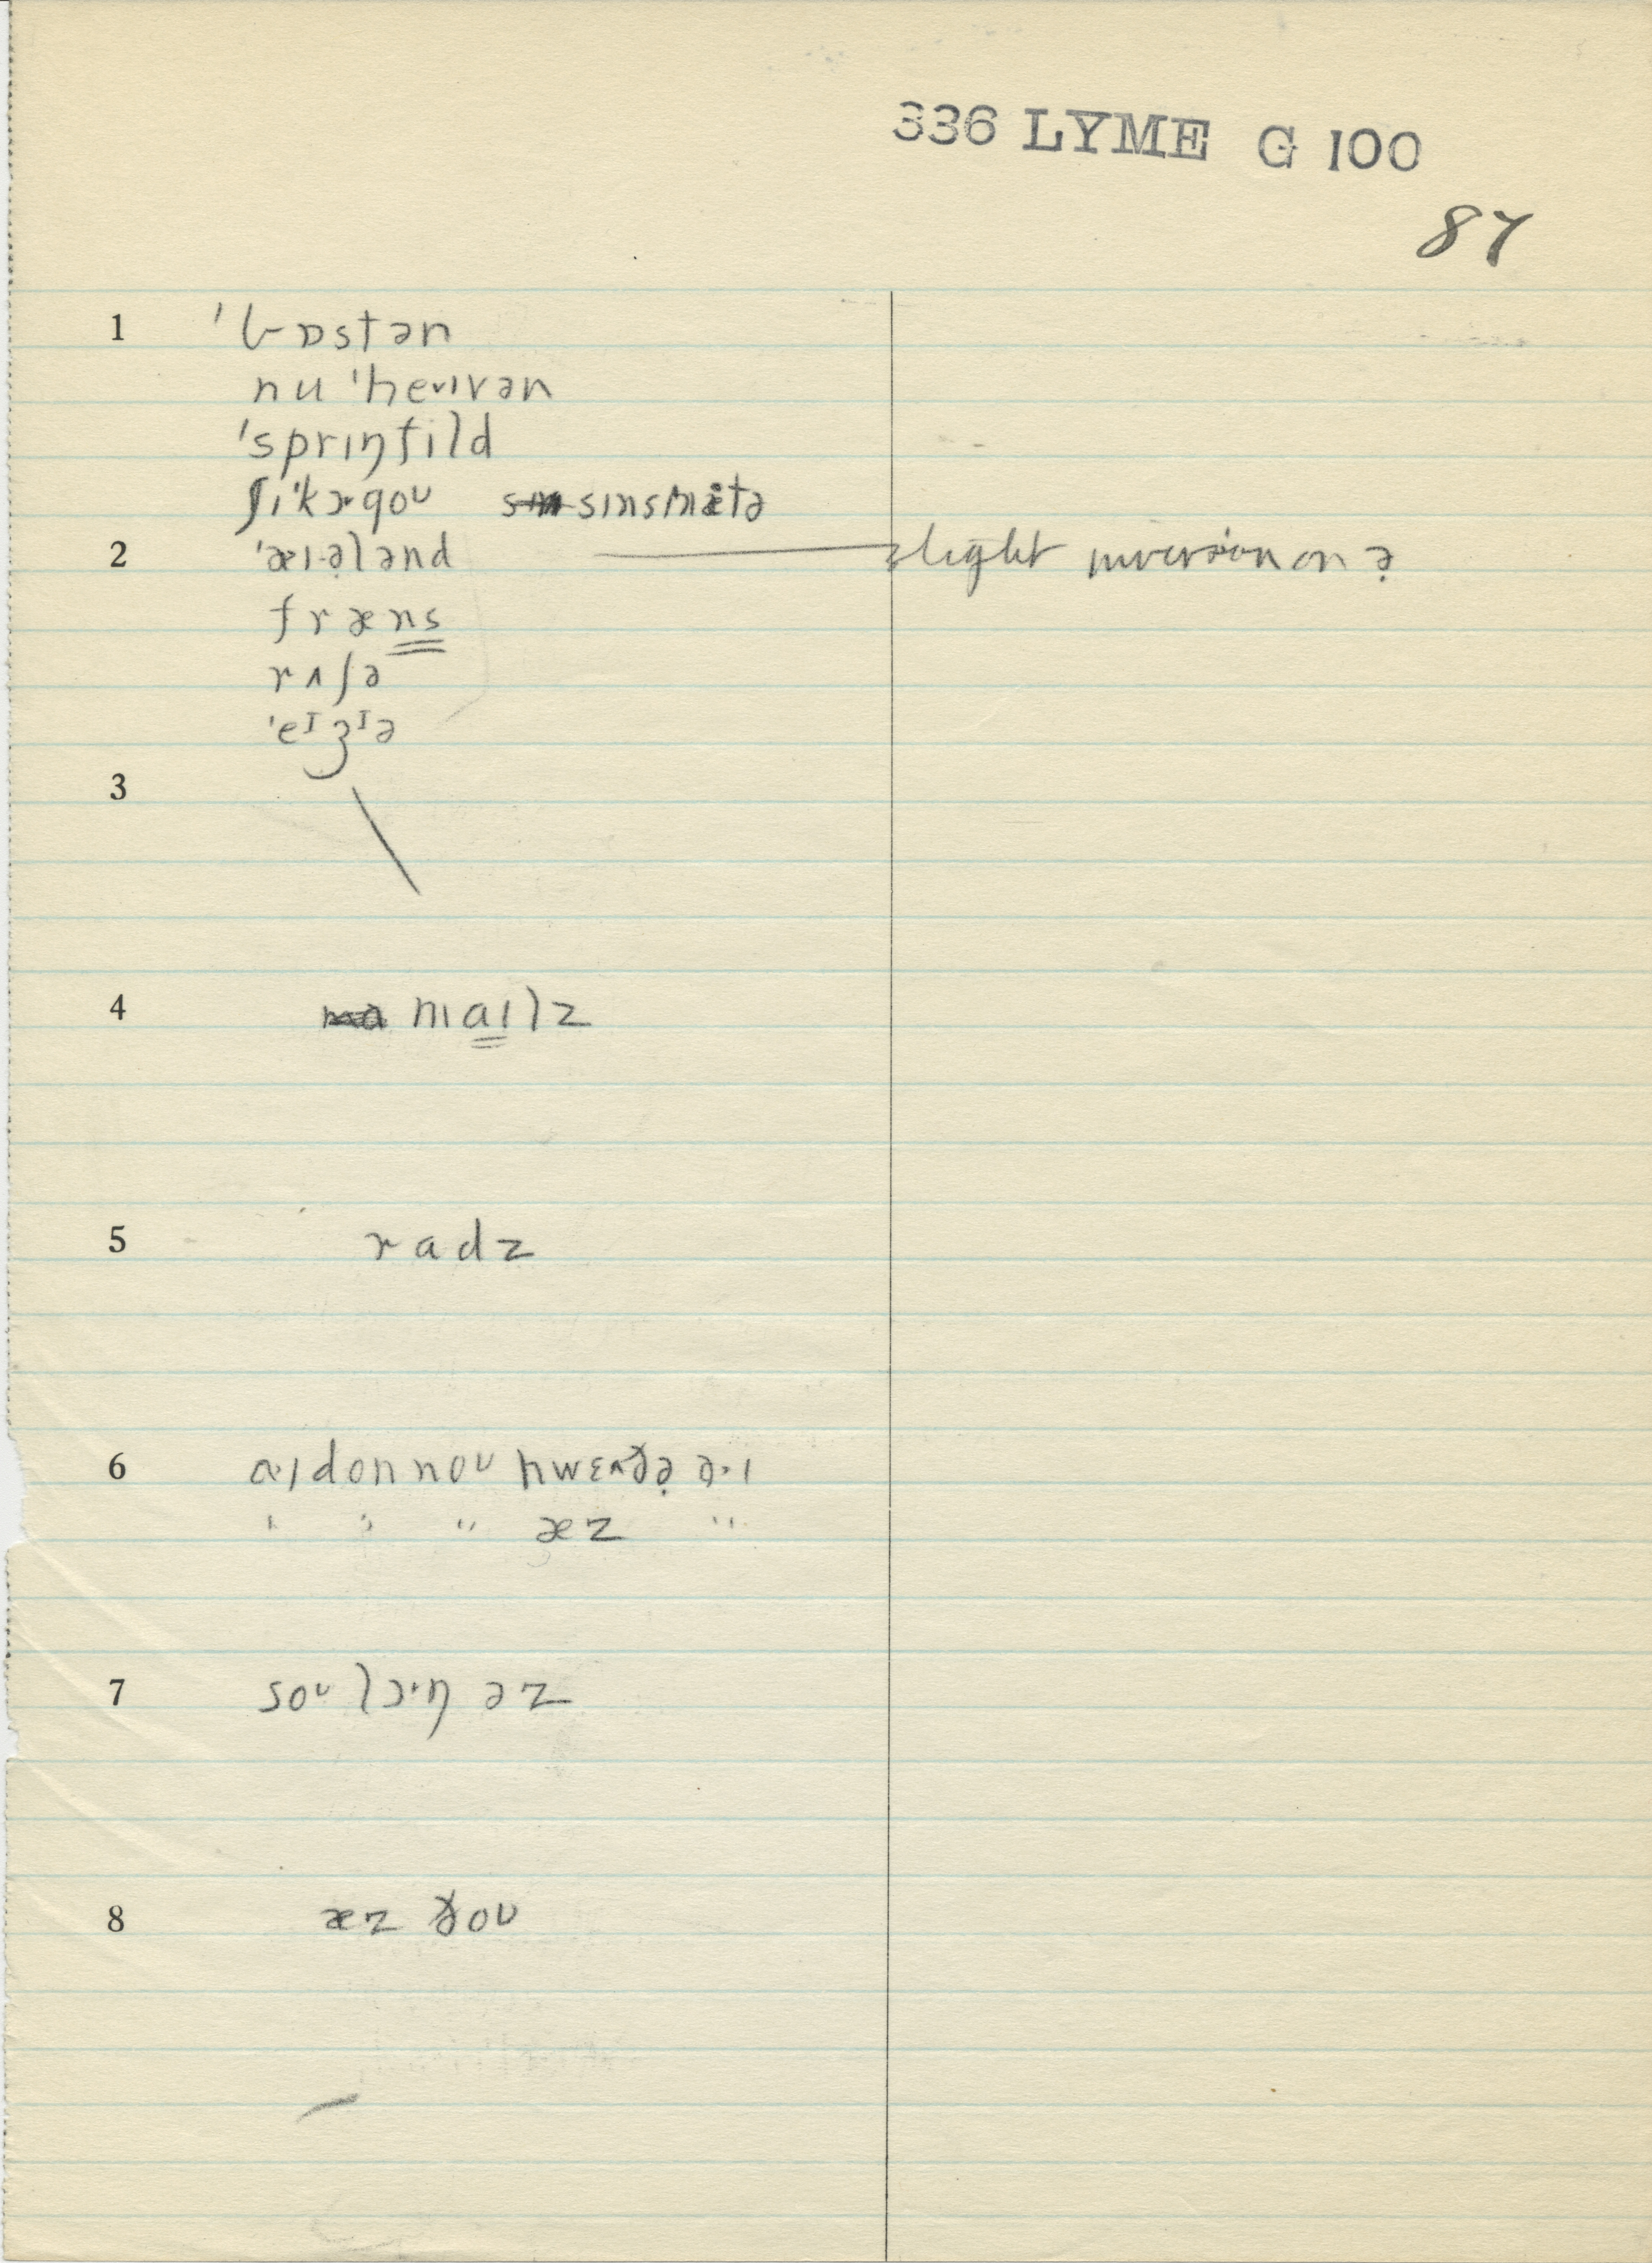 336 LYME G 100
87
1 'bɒstən
nu 'heᵛɪvən
'sprɪŋfild
ʃɪ'kɔ·goᵁ sɪnsnætə
2 'aɪ·ə̣lənd slight inversion on ə̣
fræns
rʌʃə
'eᴵʒᴵə
3
4 maɪlz
5 radz
6 a·ɪ don noᵁ hwɛ^ðə̣ ə·ɪ
" " " æz "
7 soᵁ lɔ·ŋ əz
8 æz ðoᵁ